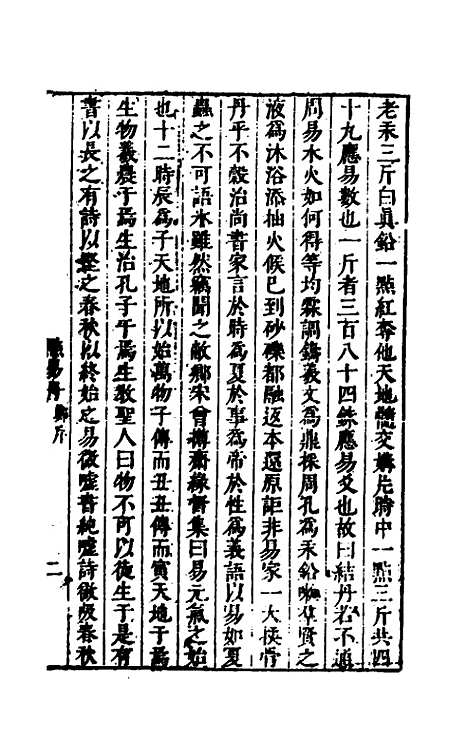 老汞三斤白真鉛一點紅奪他天地髓交媾片時中一點三斤共四
十九應易數也一斤者三百八十四銖應易爻也故曰結丹若不通
周易水火如何得等均霖調鑄羲文為鼎採周孔為汞鉛群賢之
液為沐浴添抽火候已到砂礫都融返本還原詎非易家一大快
丹乎不穀治尚書家言於時為夏於事為帝於性為義語以易如夏
蟲之不可語氷雖然竊聞之敝鄉宋曾摶齋緣督集曰易元氣之始
也十二時辰為子天地所以始萬物子傳而丑丑傳而寅天地于焉
生物羲農于焉生治孔子于焉生教聖人曰物不可以後生于是有
書以長之有詩以堅之春秋以終始之易微嘘書純嘘詩微吸春秋
易 斤
二